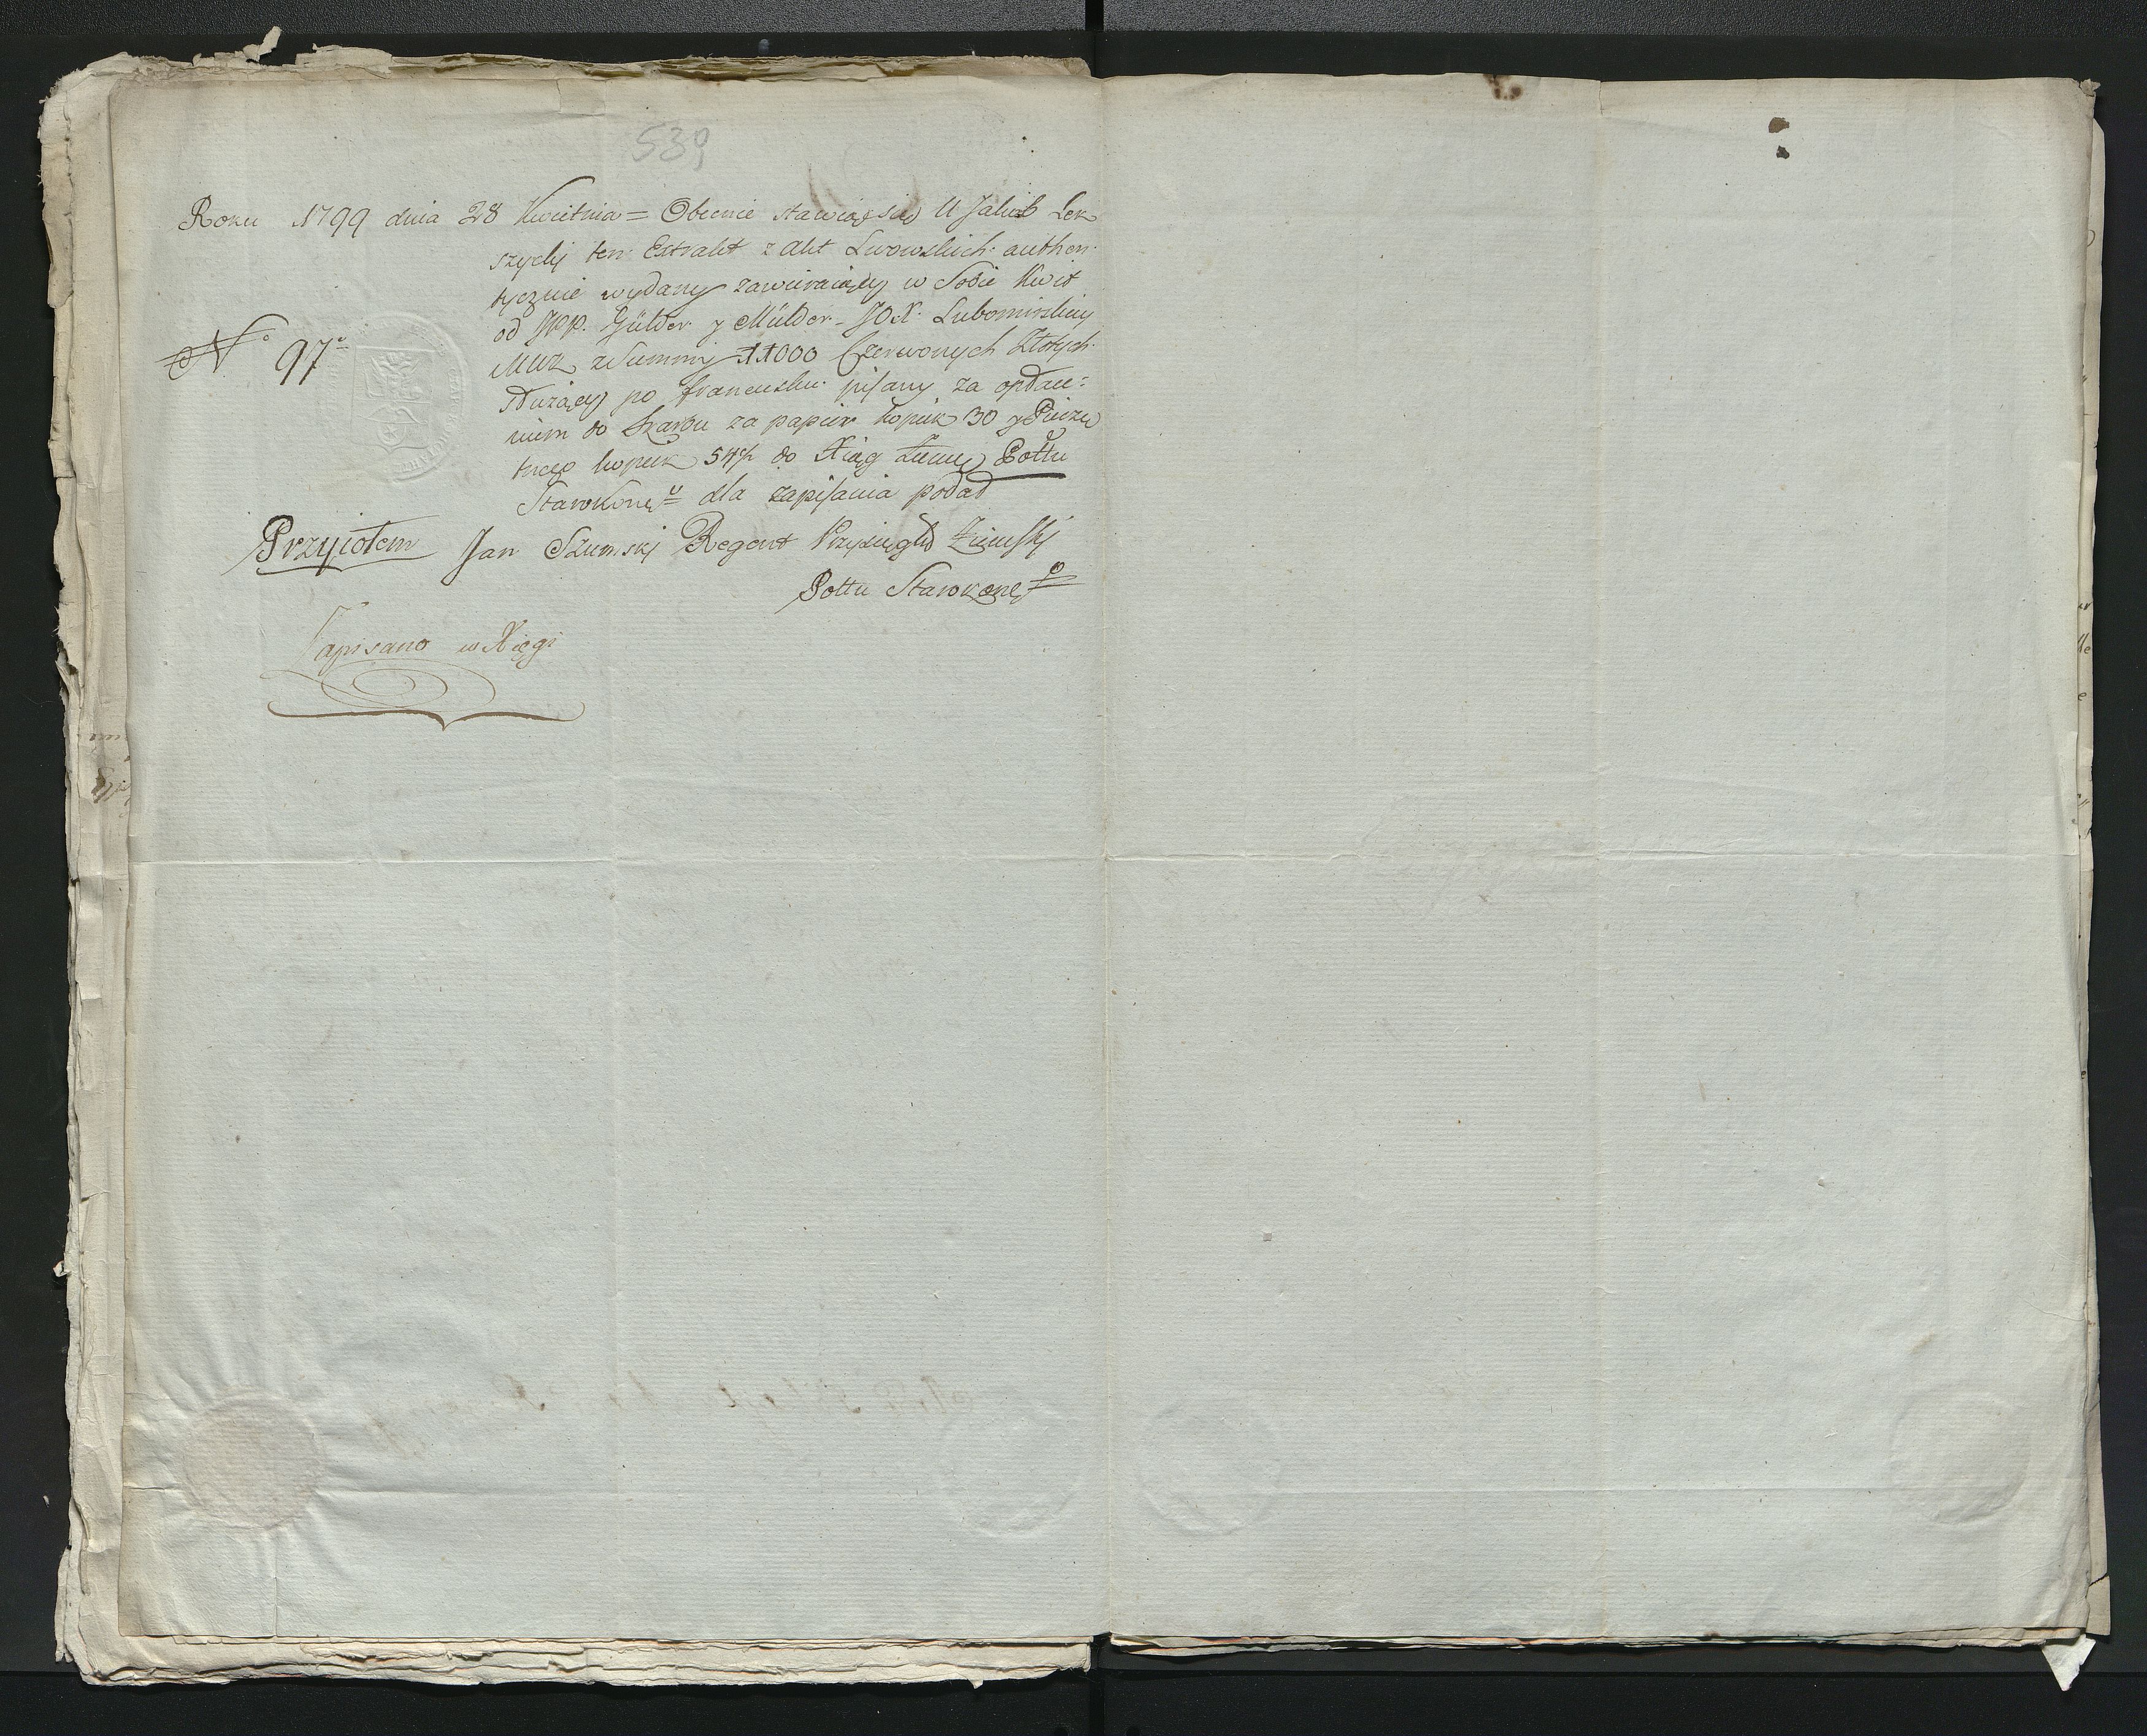 539
Roku 1799 dnia 28 Kwietnia = Obecnie stawiąc się U Jakub Lek
szycki ten Extrakt z Akt Lwowskich authen
tycznie wydany zawieraiący w Sobie Kwit
od JPP. Gülder y Mülder JO X. Lubomirskiey
z Summy 11000 Czerwonych Złotych
służący po francusku pisany za opłace=
niem do Skarbu za papier kopiek 30 y Pieczę
tnego kopiek 54½ do Xiąg Ziem Pottu
Starokone° dla zapisania podał
N° 97°
Przyiołem Jan Szumski Regent Przysięgły Ziemski
Pottu Starokone°
Zapisano w Xięgi